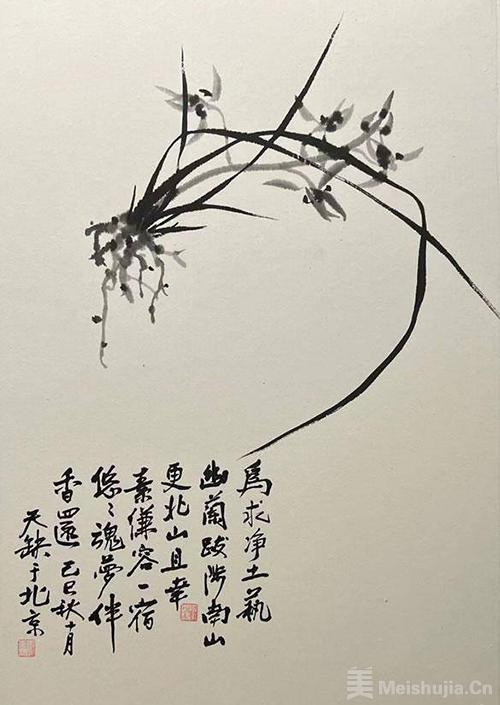 為求净土藝
幽蘭跋涉南山
更北山且幸
素縑容一宿
悠々魂夢伴
香還 己巳秋十月
天缺于北京
美 Meishujia.Cn